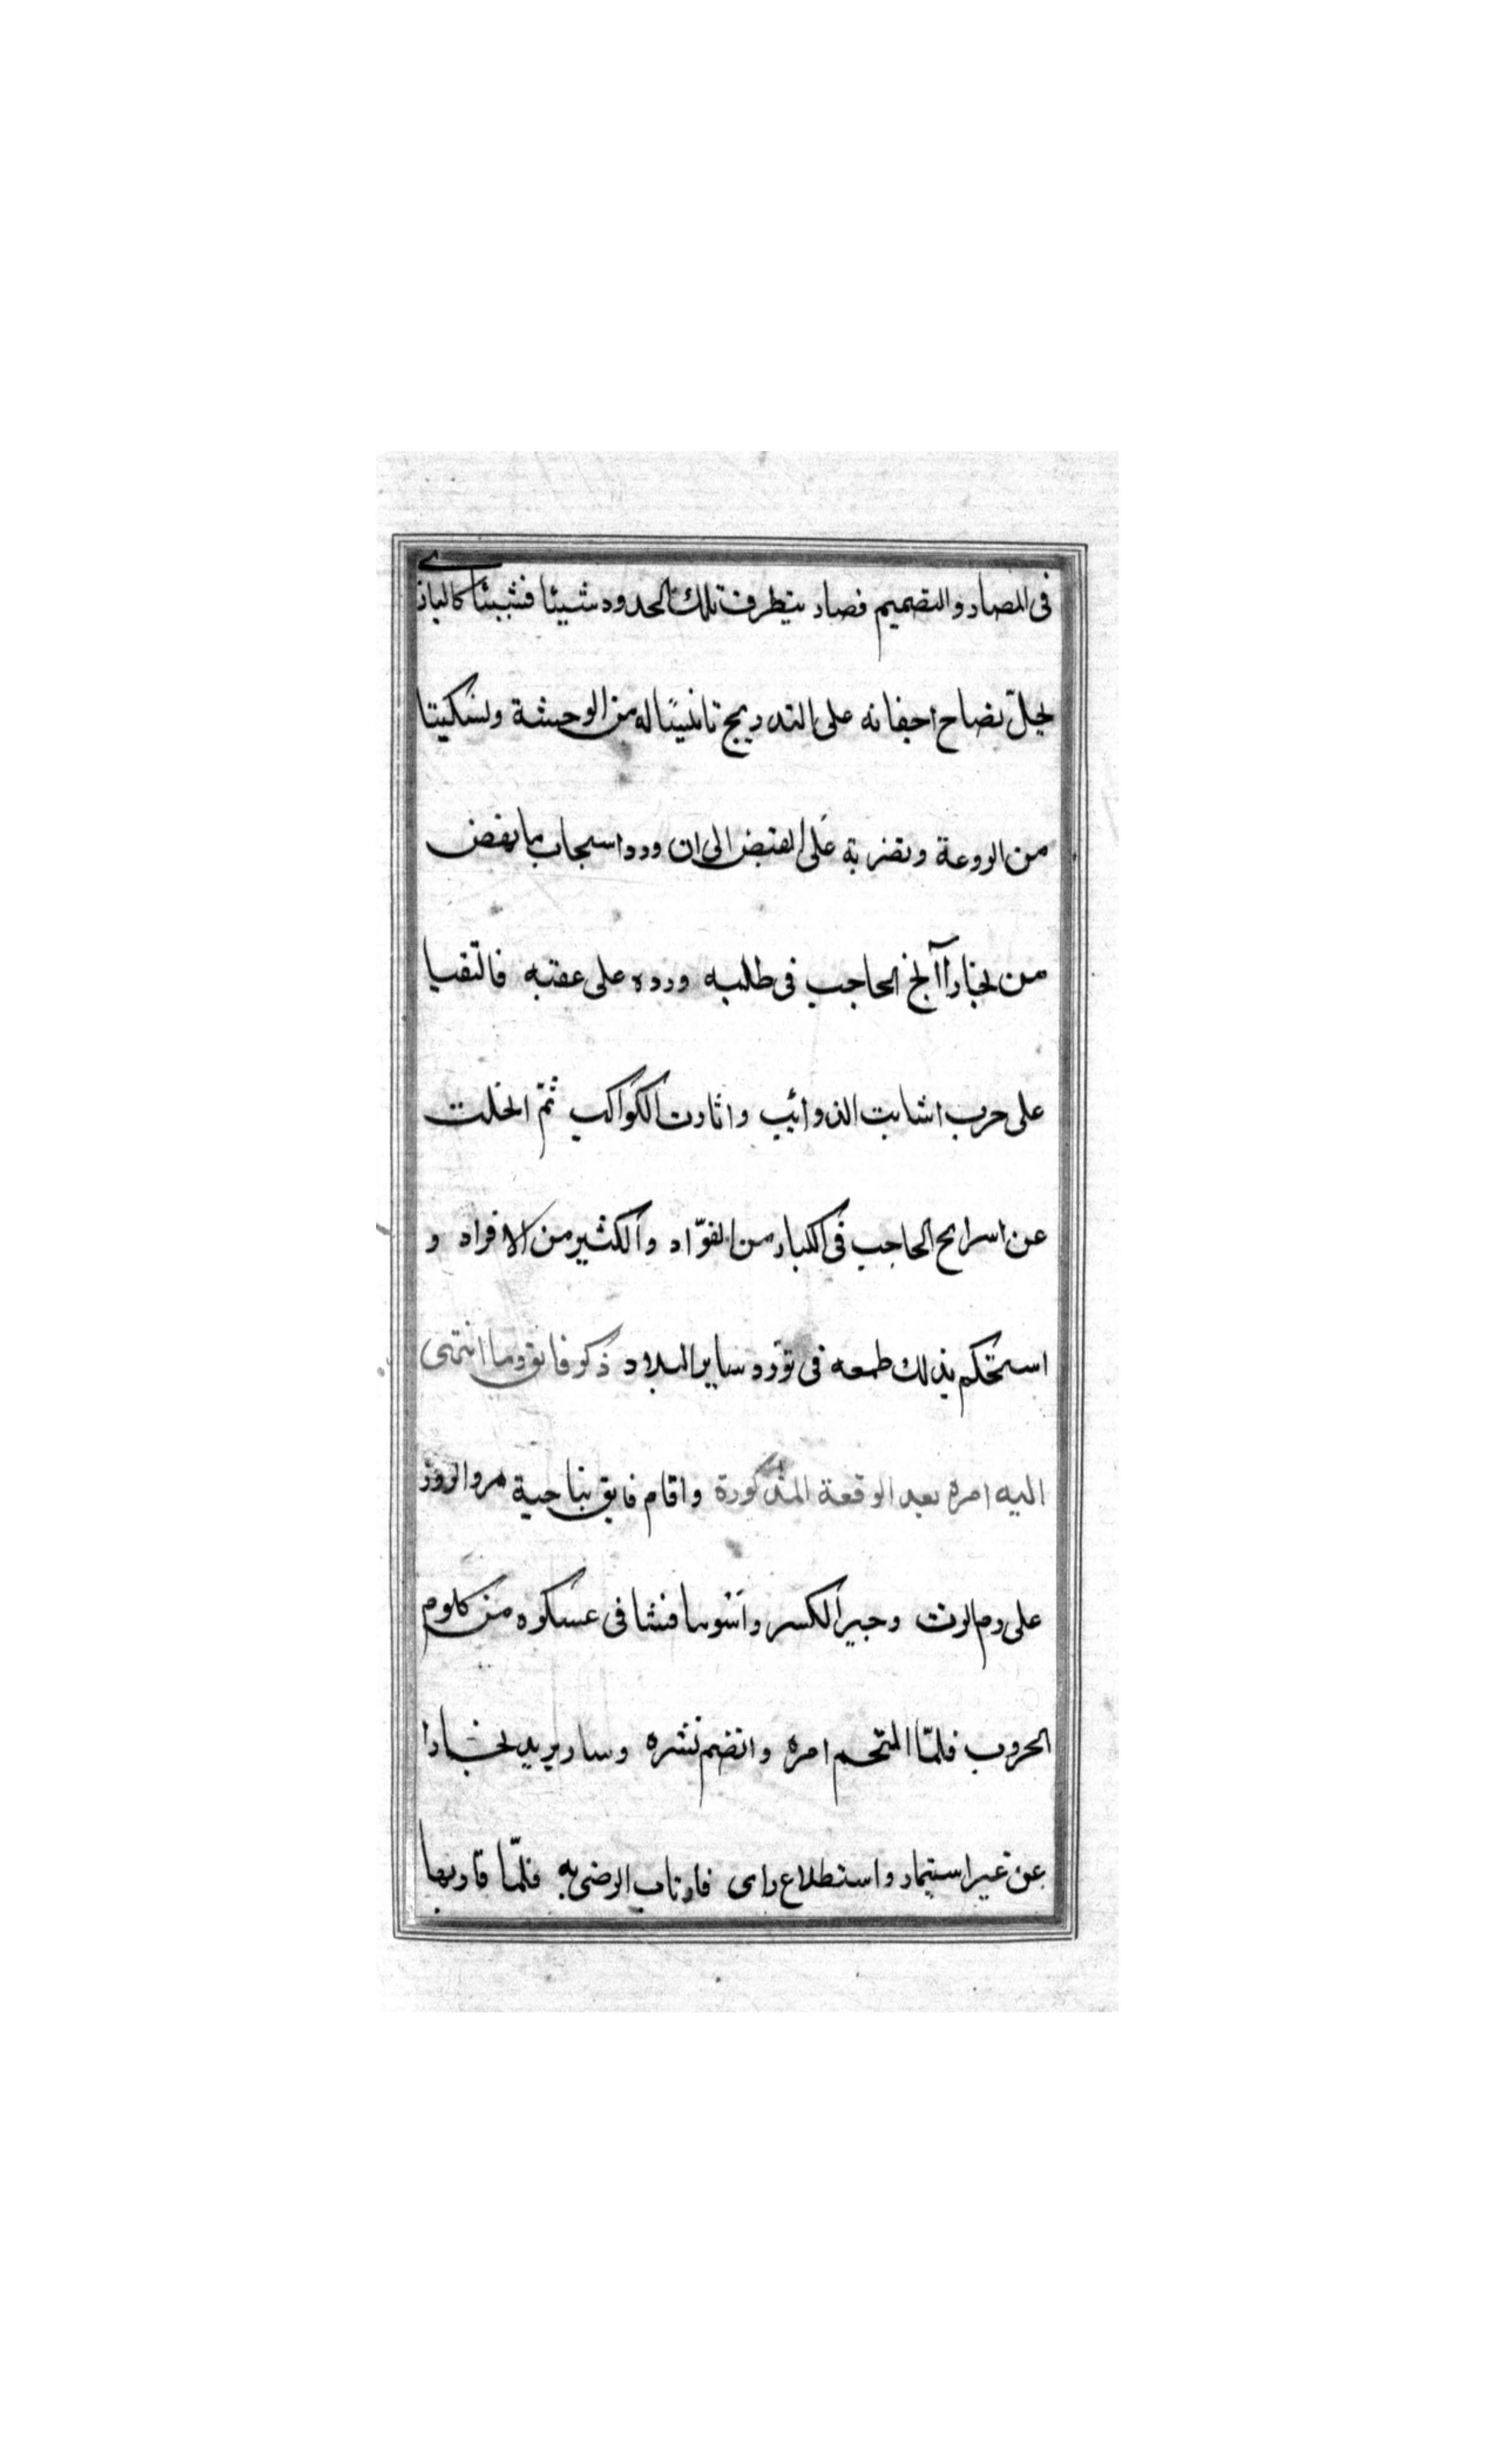 فى المصار والتصميم فصار يتطرف تلك الحدود شيئا فشيئا كالبازى
لحلّ نصاح اجفانه على التدريج تانيسًا له من الوحشة وتسكينا
من الروعة وتضرية على القنض الى ان ورد اسبجاب بما نهض
من بخارا آلج الحاجب فى طلبه ورده على عقبه فالتقيا
على حرب اشابت الذوائب واثارت الكواكب ثمّ انجلت
عن اسرالج الحاجب فى الكبار من القوّاد والكثير من الافراد و
استحكم بذلك طمعه فى تورّد ساير البلاد ذكر فايق وما انتهى
اليه امره بعد الوقعة المذكورة واقام فايق بناحية مرو الروذ
على رم الرث وجبر الكسر واسوما فشا فى عسكره من كلوم
الحروب فلمّا التحم امره وانضم نشره وسار يريد بخارا
عن غير استيمار واستطلاع راى فارتاب الرضى به فلمّا قاربها